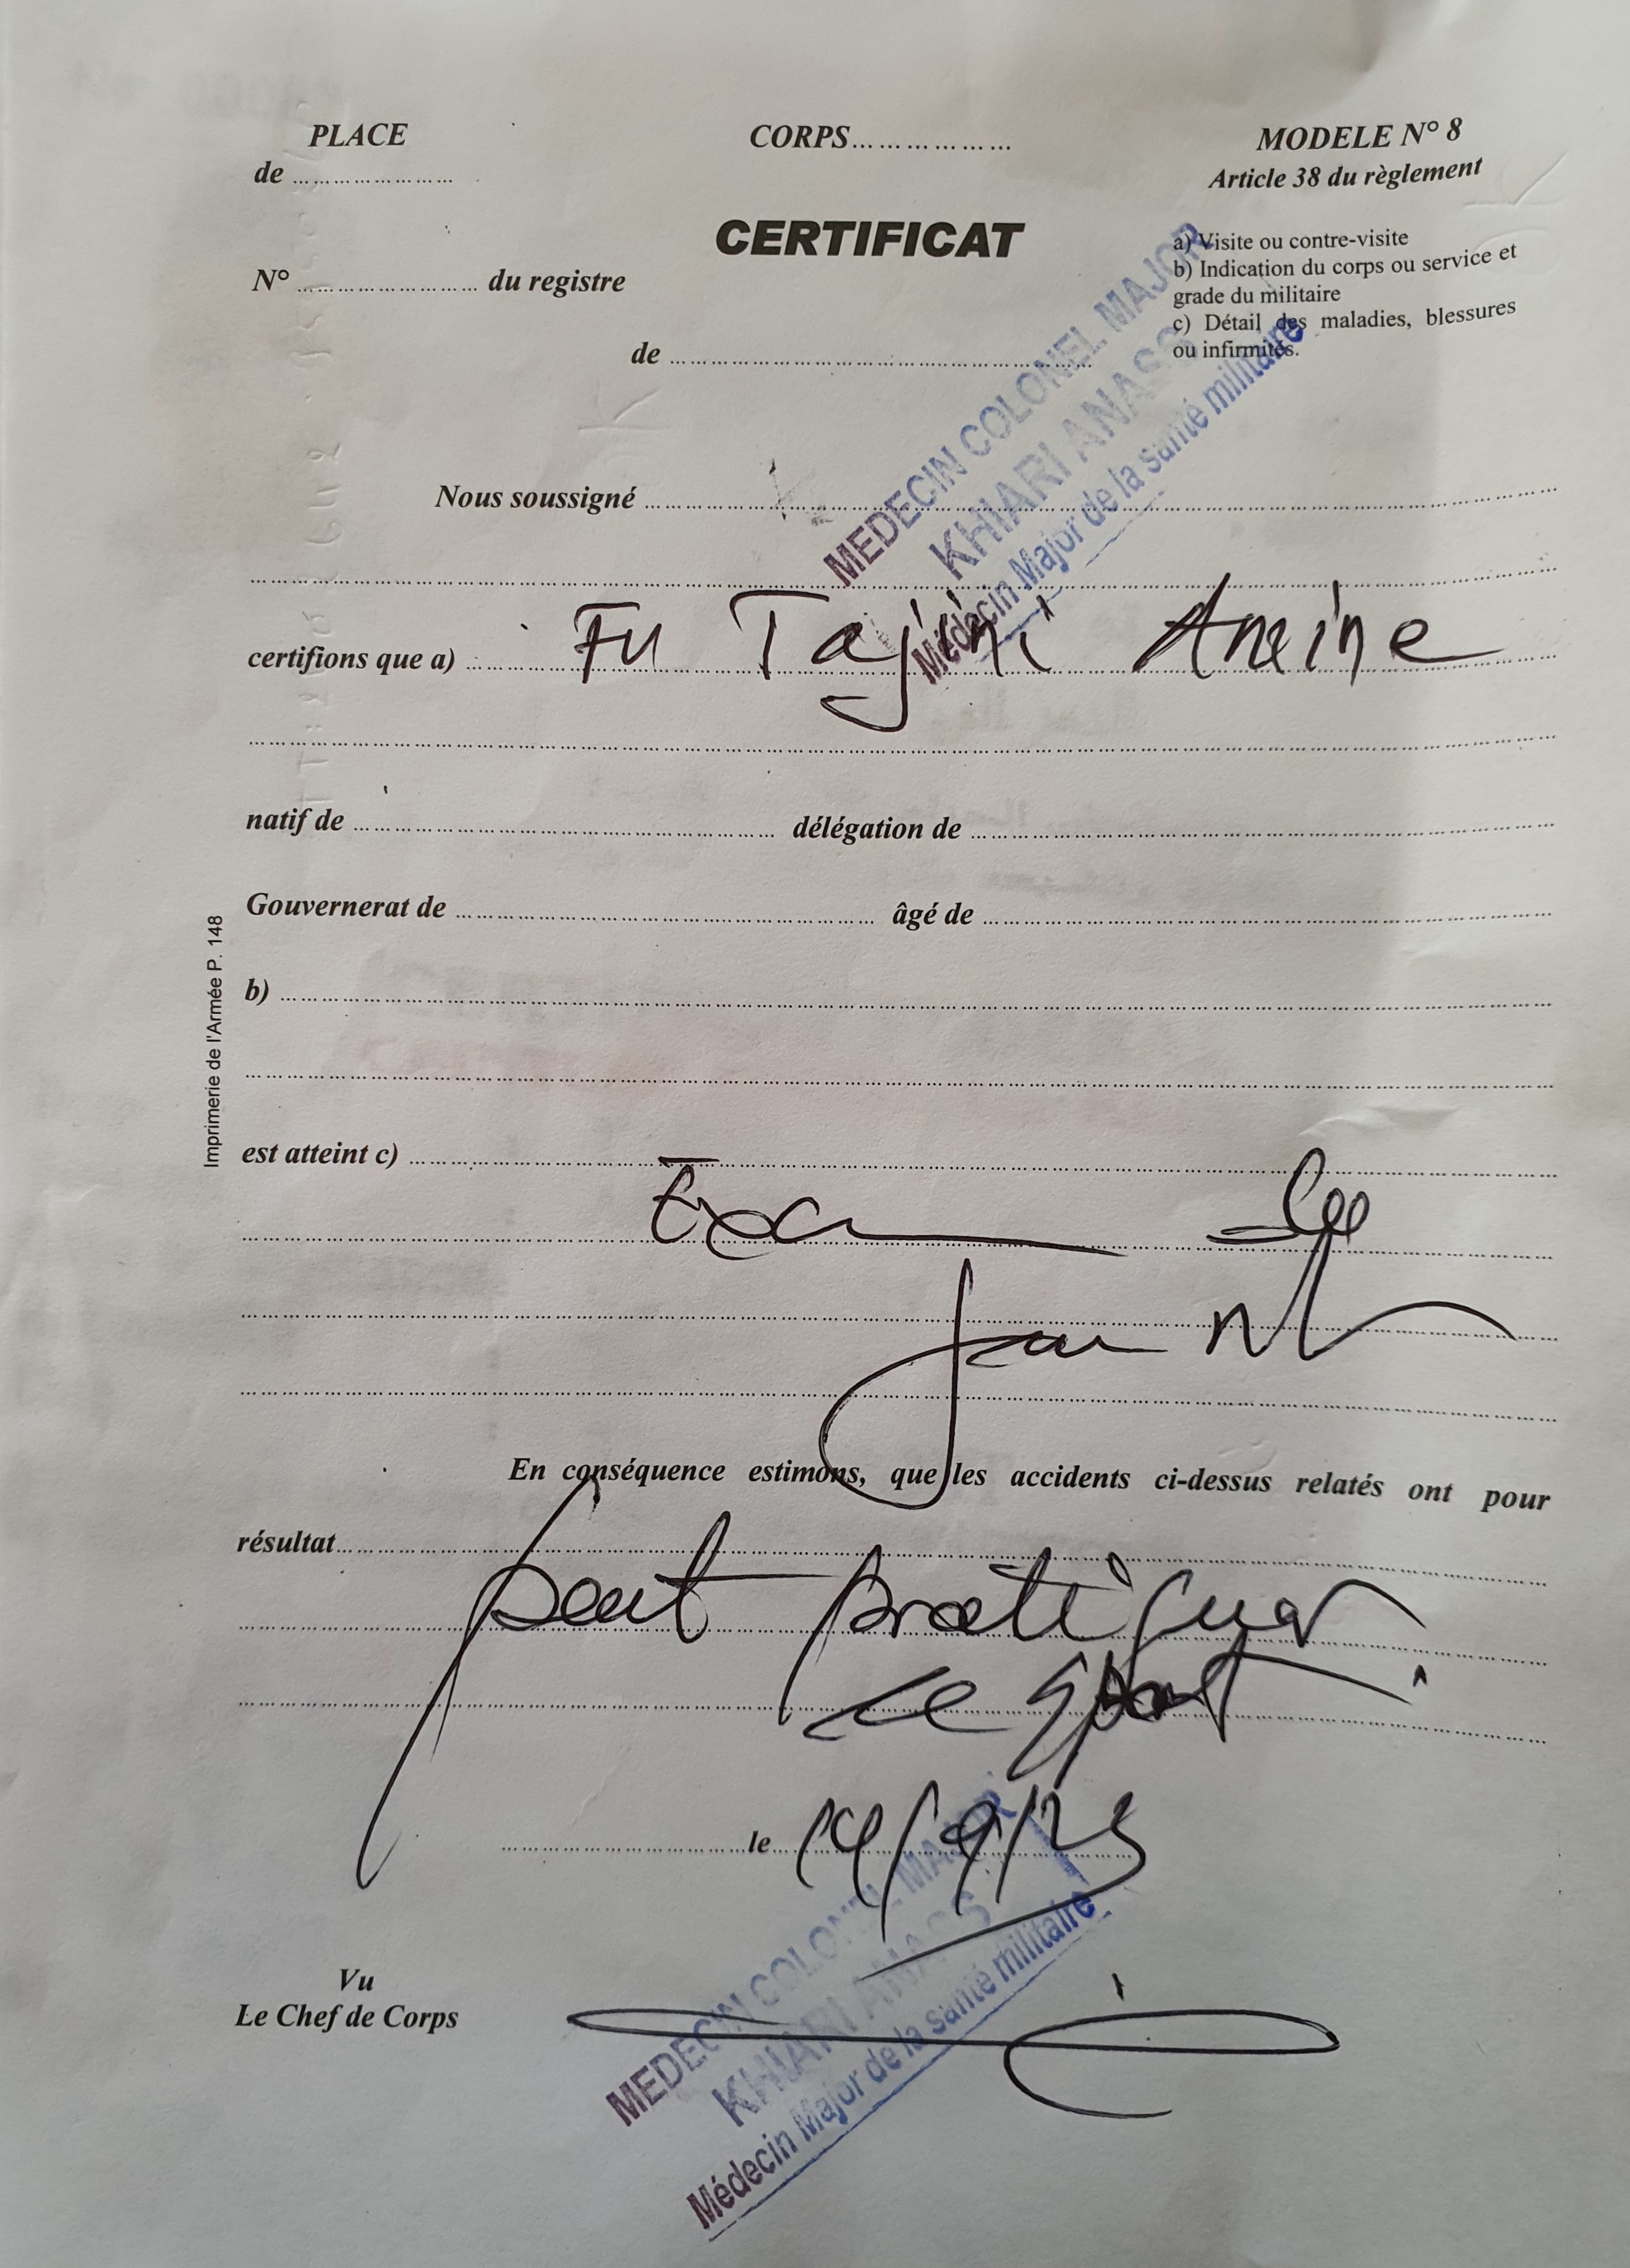 PLACE
de ........................
CORPS..................
MODELE N° 8
Article 38 du règlement
CERTIFICAT
N° ........................ du registre
de ................................................
a) Visite ou contre-visite
b) Indication du corps ou service et
grade du militaire
c) Détail des maladies, blessures
ou infirmités.
MEDECIN COLONEL MAJOR
KHIARI ANASS
Médecin Major de la santé militaire
Nous soussigné ................................................
certifions que a) Tajini Amine
natif de ........................ délégation de ........................
Gouvernerat de ........................ âgé de ........................
b) ................................................
est atteint c) ................................................
En conséquence estimons, que les accidents ci-dessus relatés ont pour
résultat................................................
peut pratiquer
le sport
........................le 14/9/23
Vu
Le Chef de Corps
MEDECIN COLONEL MAJOR
KHIARI ANASS
Médecin Major de la santé militaire
Imprimerie de l'Armée P. 148